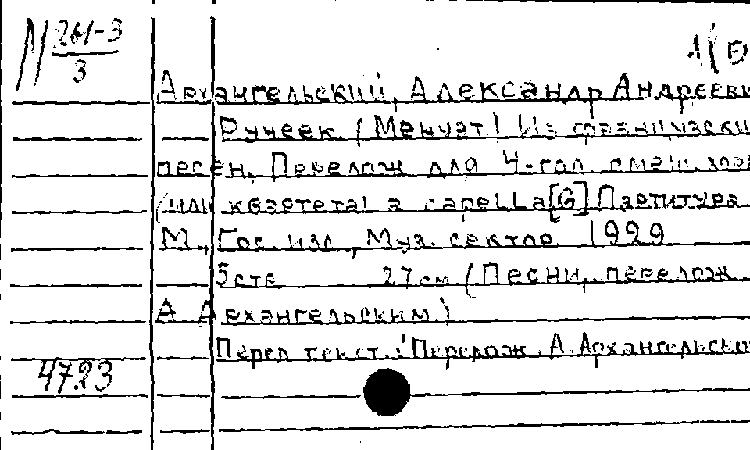 М 261-3
3
Архангельский, Александр Андрееви
Ручеек. (Менуэт) Из французски
песен. Перелож для 4-гол. смеш. хора
(или квартета) a capella [G] Партитура
М., Гос. изд., Муз. сектор 1929
5 стр 27 см (Песни, перелож
А Архангельским)
Перед текст.: Перелож. А. Архангельско
4723